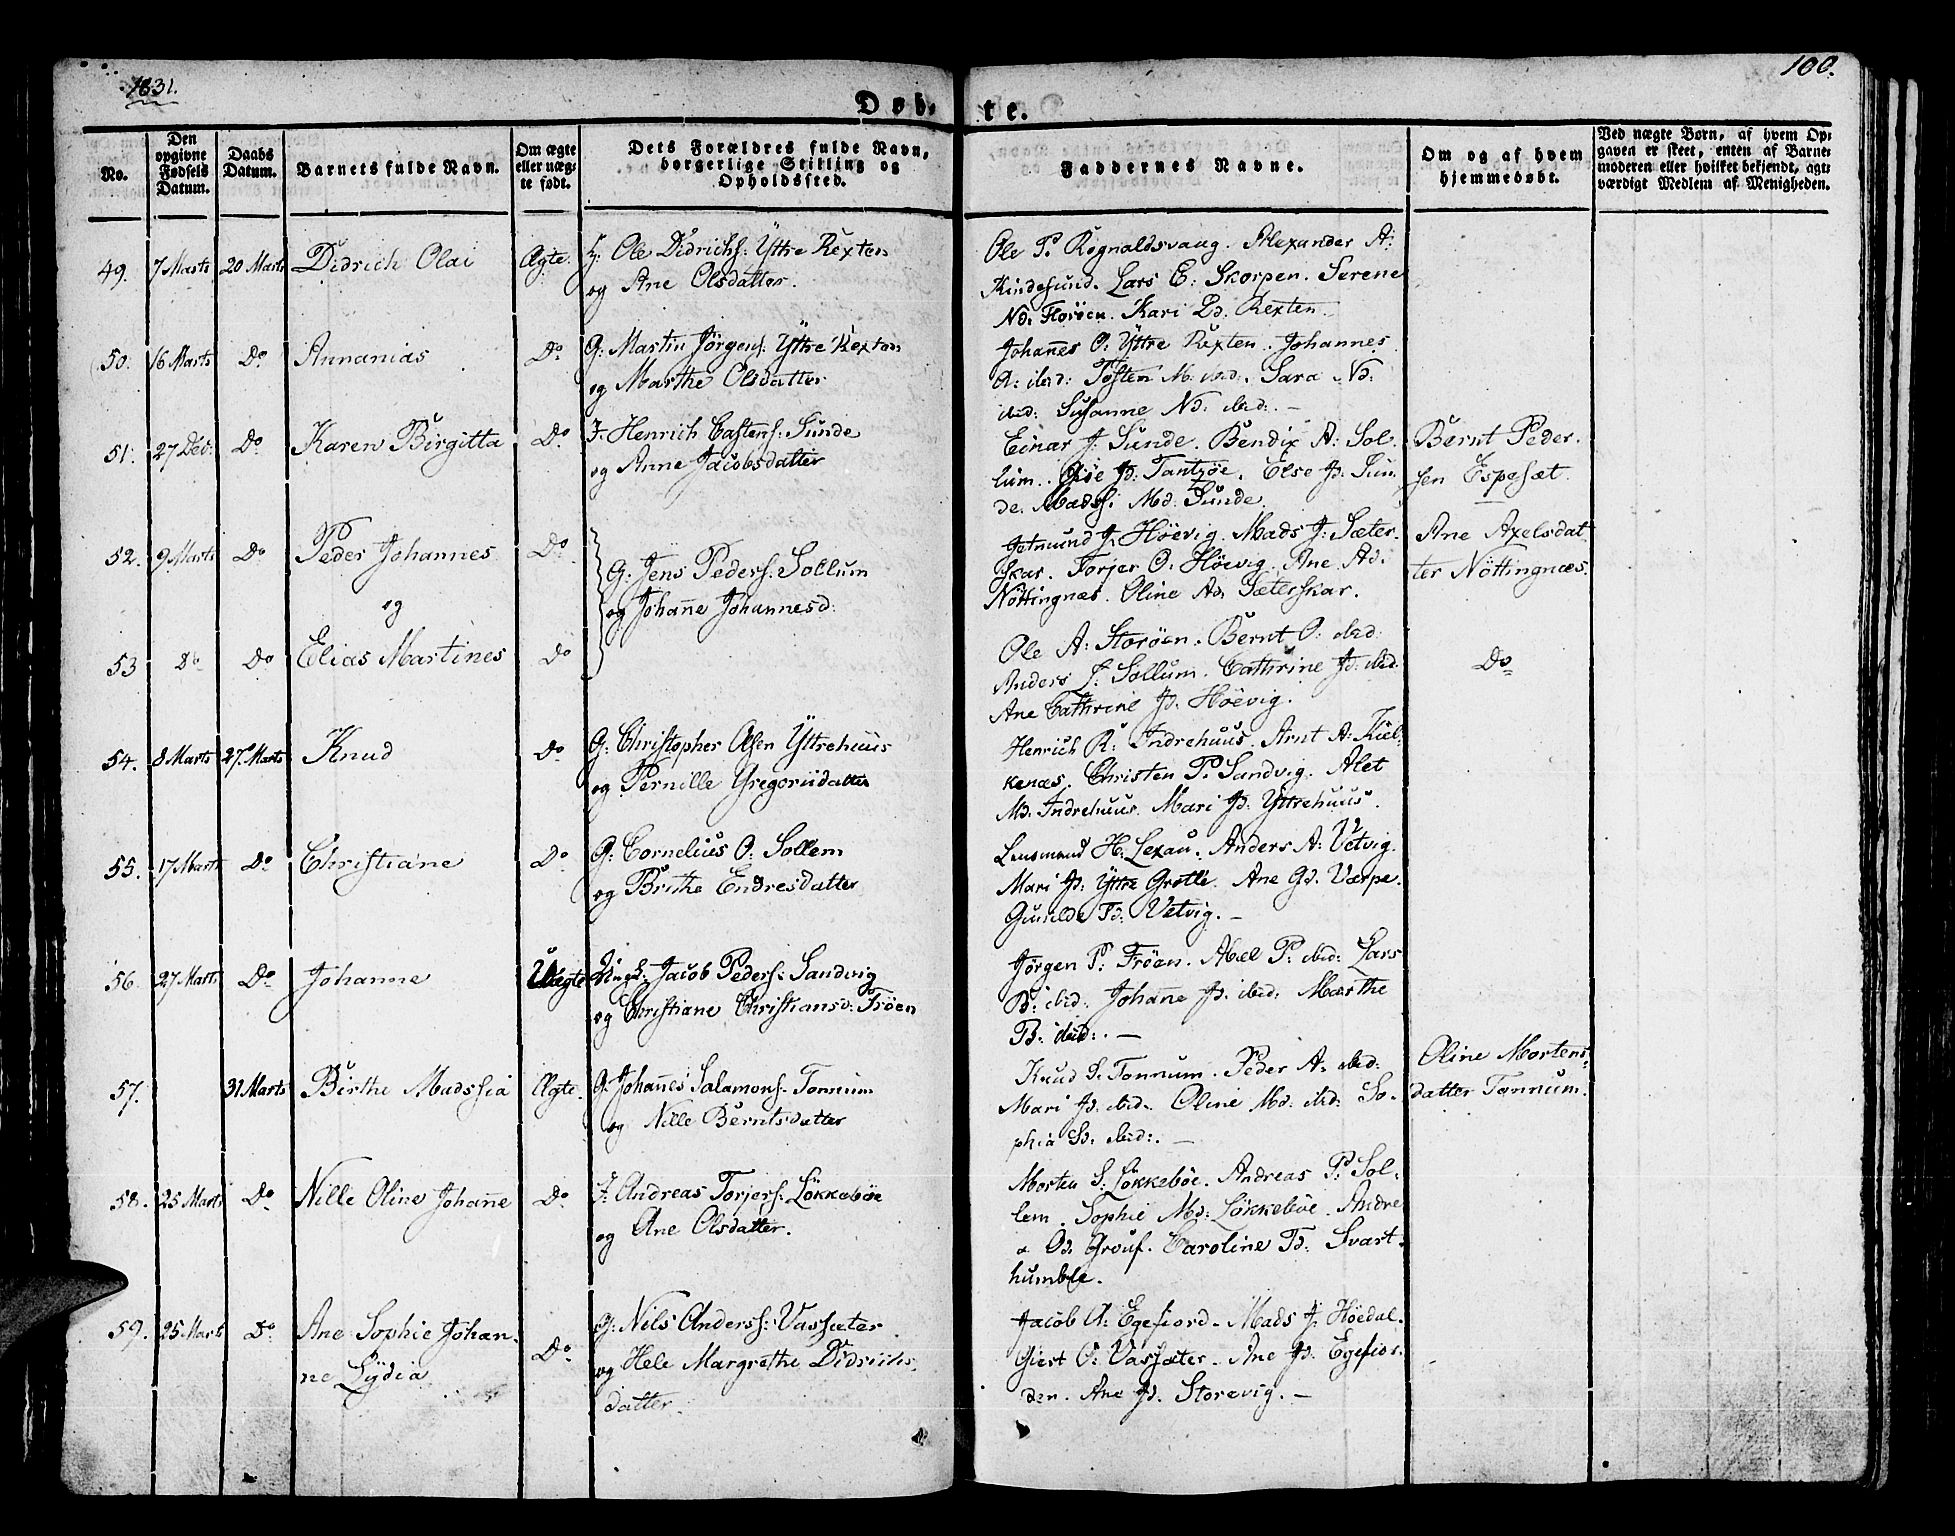 1831.
100.
Døb-
te.
No.
Den opgivne Fødsels Datum.
Daabs Datum.
Barnets fulde Navn.
Om ægte eller uægte født.
Dets Forældres fulde Navn, borgerlige Stilling og Opholdssted.
Faddernes Navne.
Om og af hvem hjemmedøbt.
Ved uægte Børn, af hvem Opgaven er skeet, enten af Barnemoderen eller hvilket bekjendt, agtværdigt Medlem af Menigheden.
49. 7 Marts 20 Marts Didrich Olai Ægte. Ole Didrichs: Yttre Rexten
og Ane Olsdatter.
Ole P. Rognaldsvaag. Alexander A:
Kindesund. Lars E: Skorpen. Serene
Nd: Florøen. Kari Ld. Rexten
50. 16 Marts Do Annanias Do G: Martin Jörgens: Yttre Rexten
og Marthe Olsdatter
Johañes O: Yttre Rexten. Johannes
A: ibid: Tosten M: ibid. Sara Nd:
ibid: Susanne Nd: ibid:. –
51. 27 Dec: Do Karen Birgitta Do J: Henrich Castens: Sunde
og Anne Jacobsdatter
Einar J: Sunde. Bendix A: Sol-
lum. Jd: Tantzøe. Else Jd: Sun-
de. Mads: Md: Sunde
Bernt Peder-
sen Espeset.
52. 9 Marts Do Peder Johannes Do
og
G: Jens Peders: Sollum
og Johañe Johannesd:
Jetmund J. Höevig. Mads J: Sæter-
skar. Torjer O: Höevig. Ane Ad:
Nöttingnæs. Oline Ad: Sæterskar.
Ane Axelsdat-
ter Nöttingnæs.
53 Do Do Elias Martines Do
Ole A: Storöen. Bernt O: ibid:
Anders J: Sollum. Cathrine Jd: ibid:
Ane Cathrine Jd. Höevig.
Do
54. 8 Marts 27 Marts Knud Do G: Christopher Olsen Yttrehuus
og Pernille Gregoriidatter
Henrich R: Indrehuus. Arnt A: Kiel-
kenæs. Christen P. Sandvig. Alet
Md. Indrehuus. Mari Jd. Yttrehuus.
55. 17 Marts Do Christiane Do G: Cornelius O: Sollem
og Brithe Endresdatter
Lensmand H: Lexau. Anders A: Vetvig.
Mari Jd: Yttre Grotle. Ane Gd. Værpe.
Gunilde Td: Vetvig. –
56. 27 Marts Do Johanne Uægte Ungk: Jacob Peders: Sandvig
og Christiane Christiansd: Fröen
Jörgen P: Fröen. Abel P: ibid: Lars
B: ibid. Johañe Jd. ibid: Marthe
B: ibid:. –
57. 31 Marts Birthe Madssia Ægte. G: Johañes Salamons: Tonnum
og Nille Berntsdatter
Knud S. Tonnum. Peder A: ibid:
Mari Jd: ibid. Oline Md. ibid: So-
phia Sd: ibid:. –
Oline Mortens-
datter Tonnum.
58. 25 Marts Do Nille Oline Johañe Do J: Andreas Torjers: Lökkeböe
og Ane Olsdatter.
Morten S: Lökkeböe. Andreas P: Sol-
lem. Sophie Md: Lökkeböe. Andre
a Od. Grouf. Caroline Td: Svart-
humble.
59. 25 Marts Do Ane Sophie Johan-
ne Lydia
Do G: Nils Anders: Vassæter
og Hele Margrethe Didrichs-
datter.
Jacob A: Egefiord. Mads J. Höedal.
Giert O: Vassæter. Ane Jd. Egefior-
den. Ane Jd. Storevig. –